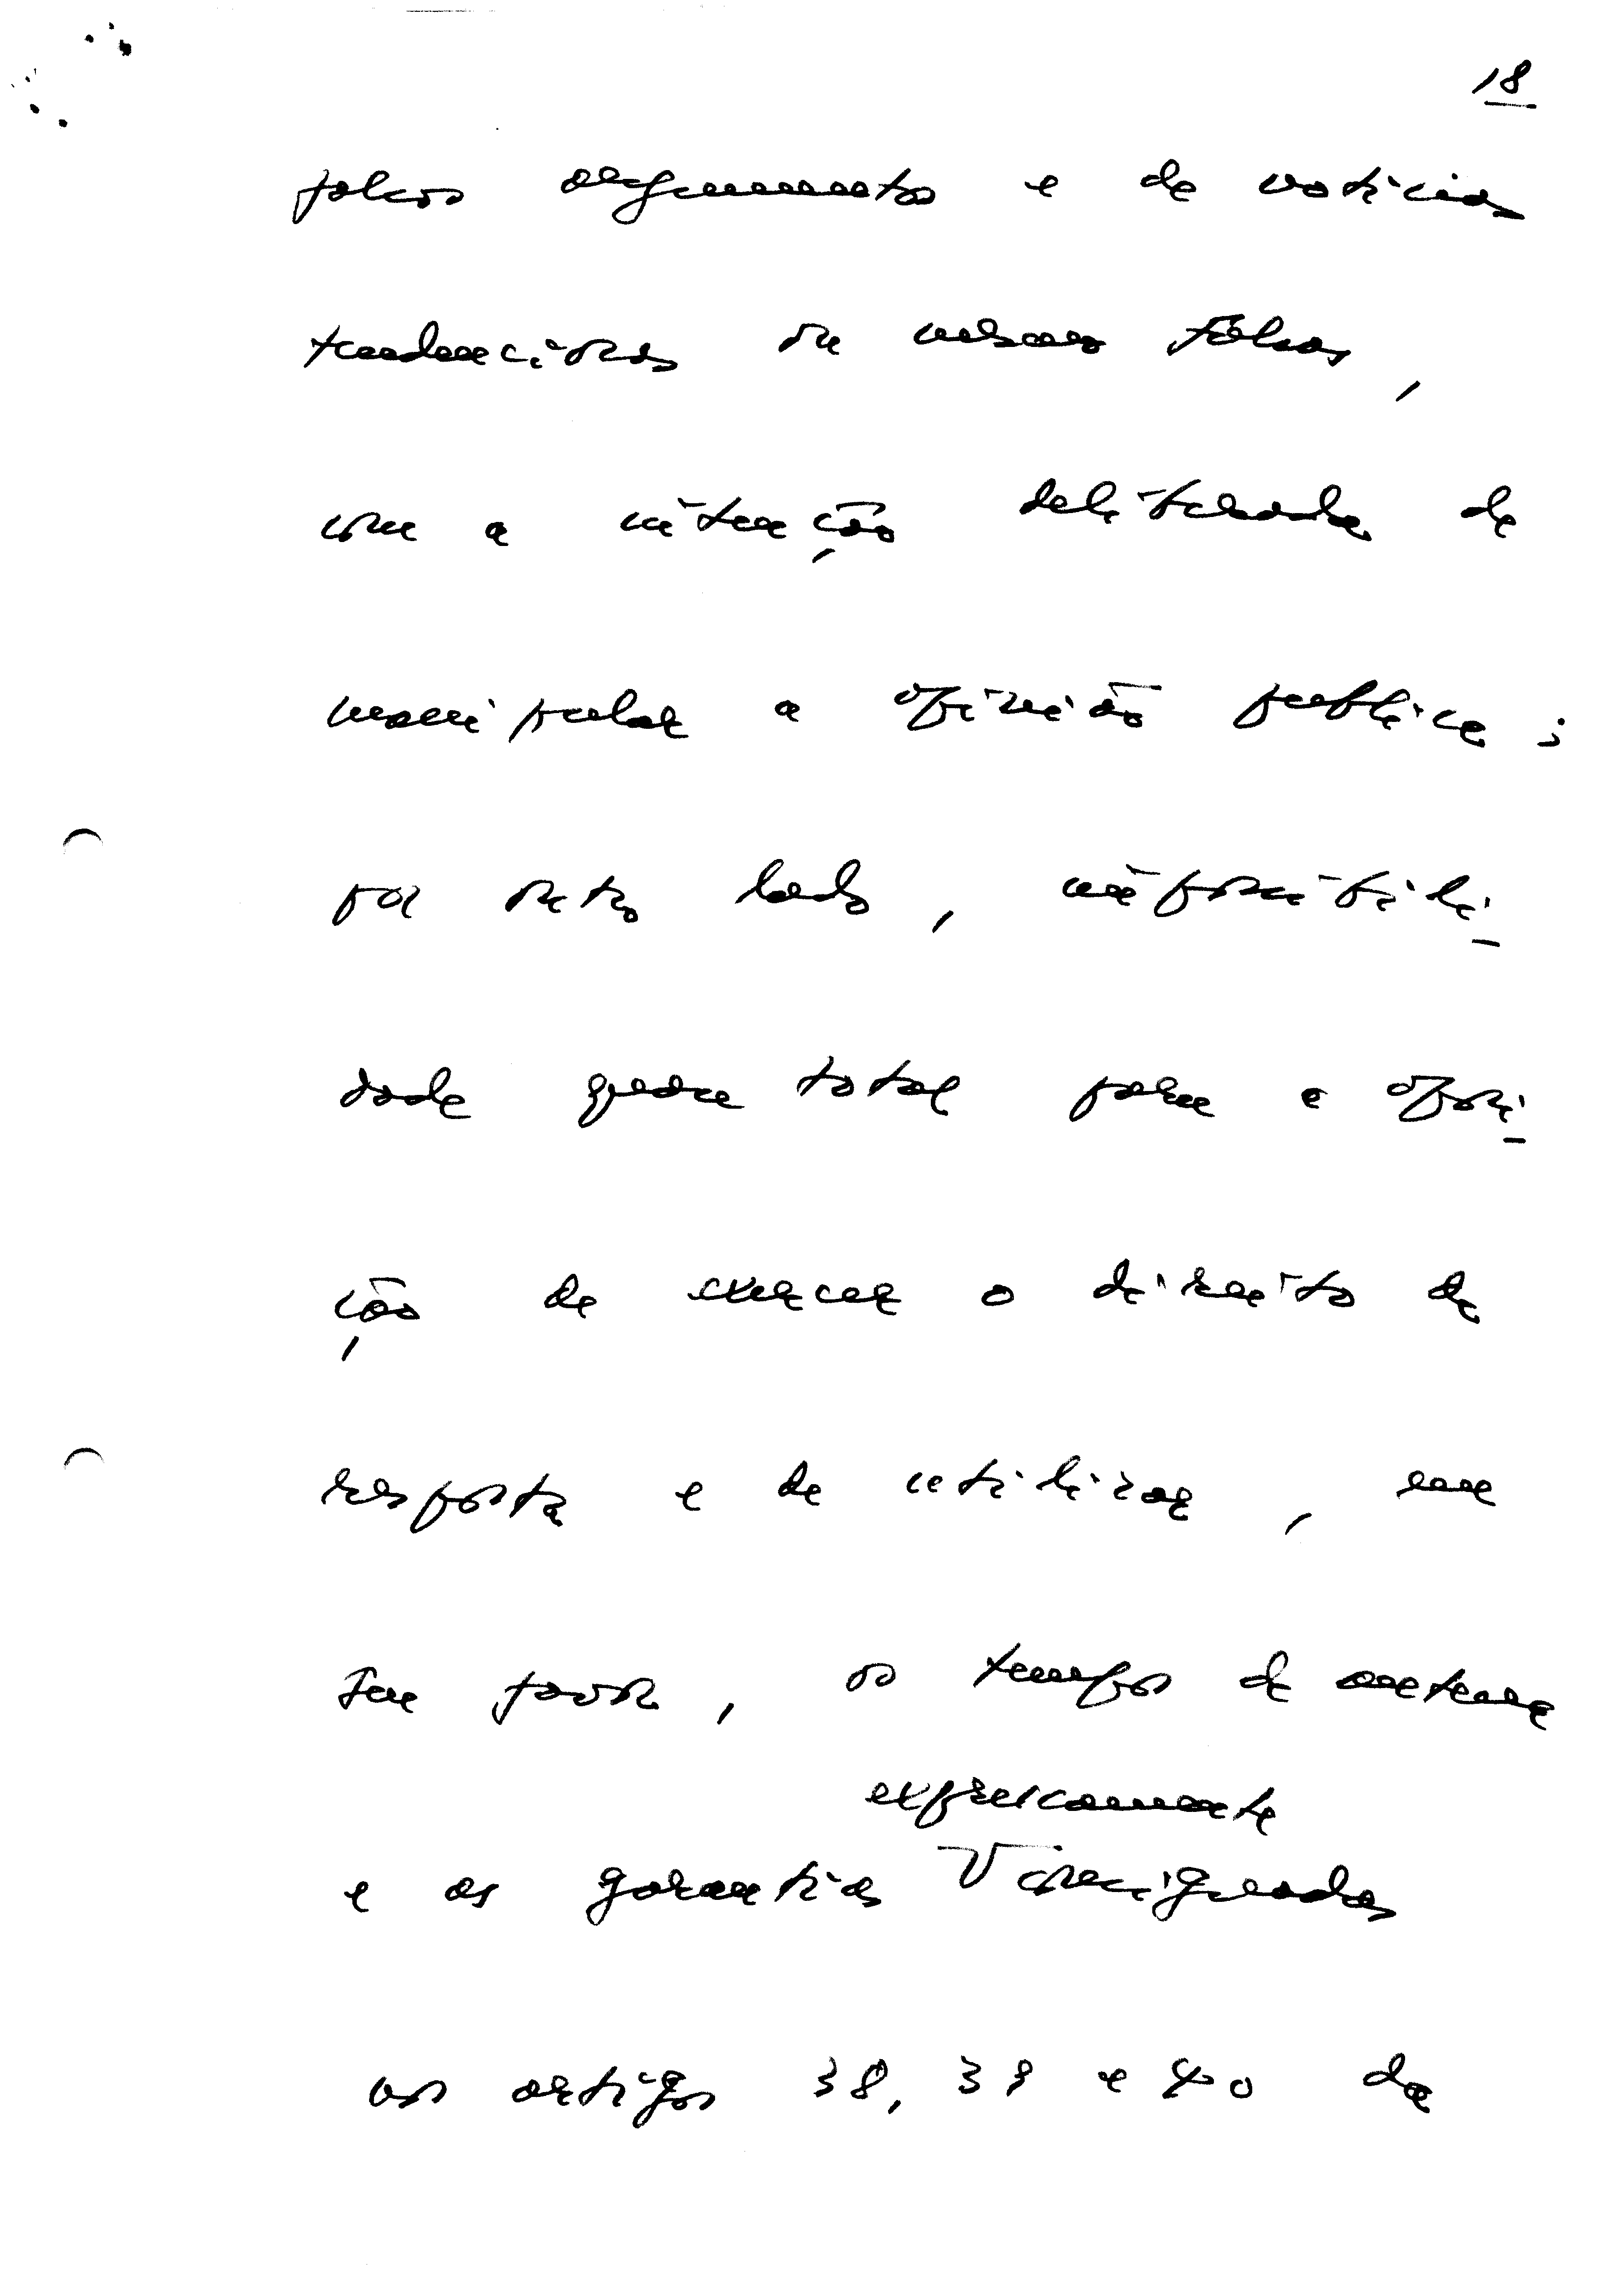 18
falsos argumentos e de noticias
tendenciosas ou mesmo falsas,
com a intenção deliberada de
manipular a opinião publica;
por outro lado, impossibili-
dade quase total para a oposi-
ção de exercer o direito de
resposta e de utilizar, em
seu favor, os tempos de antena
expressamente
e as garantias V consignadas
nos artigos 38, 39 e 40 da